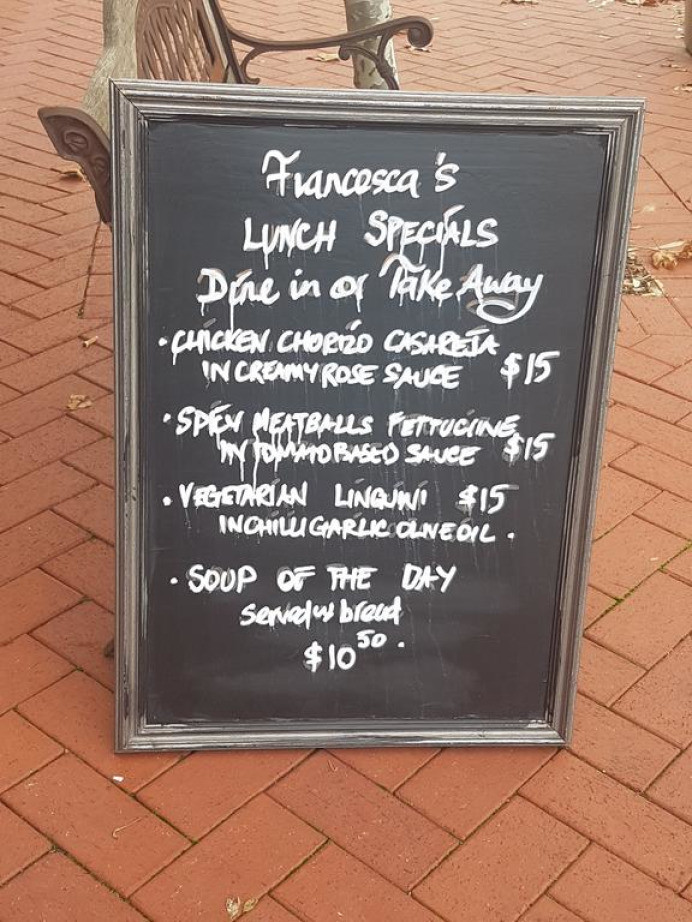 Francesca's
LUNCH SPECIALS
Dine in or Take Away
• CHICKEN CHORIZO CASAREJA
IN CREAMY ROSE SAUCE $15
• SPICY MEATBALLS FETTUCINE
IN TOMATO BASED SAUCE $15
• VEGETARIAN LINQUINI $15
IN CHILLI GARLIC OLIVE OIL .
• SOUP OF THE DAY
served w bread
$10 50 .